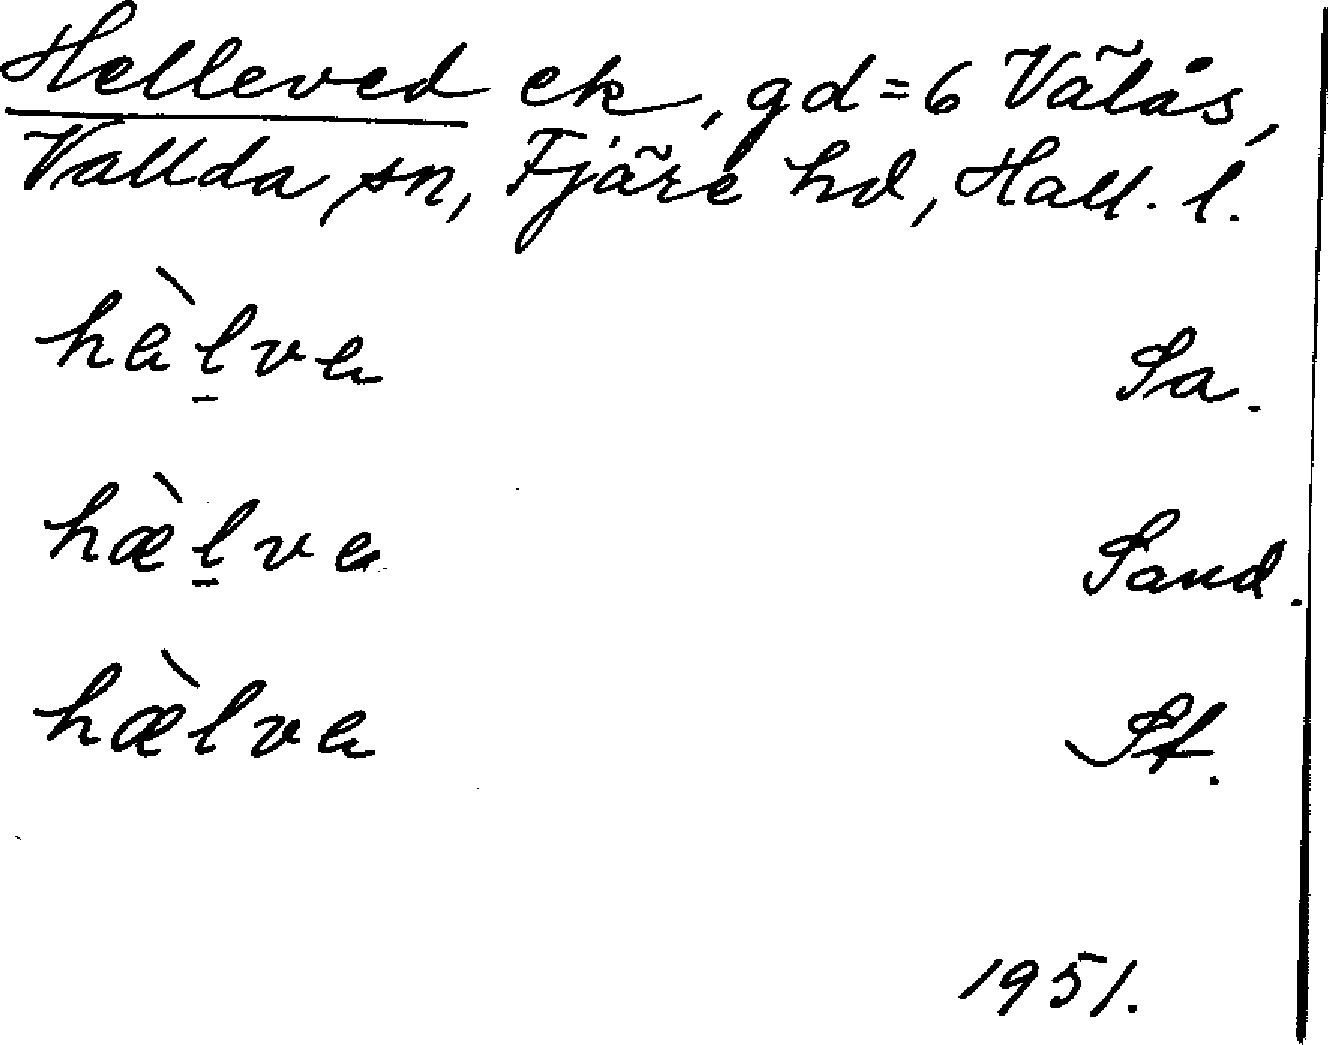 Helleved ek, gd = 6 Välås,
Vallda sn, Fjäre hd, Hall. l.
hàl̠va Sa.
hæ̀l̠va Sand.
hæ̀lva St.
1951.